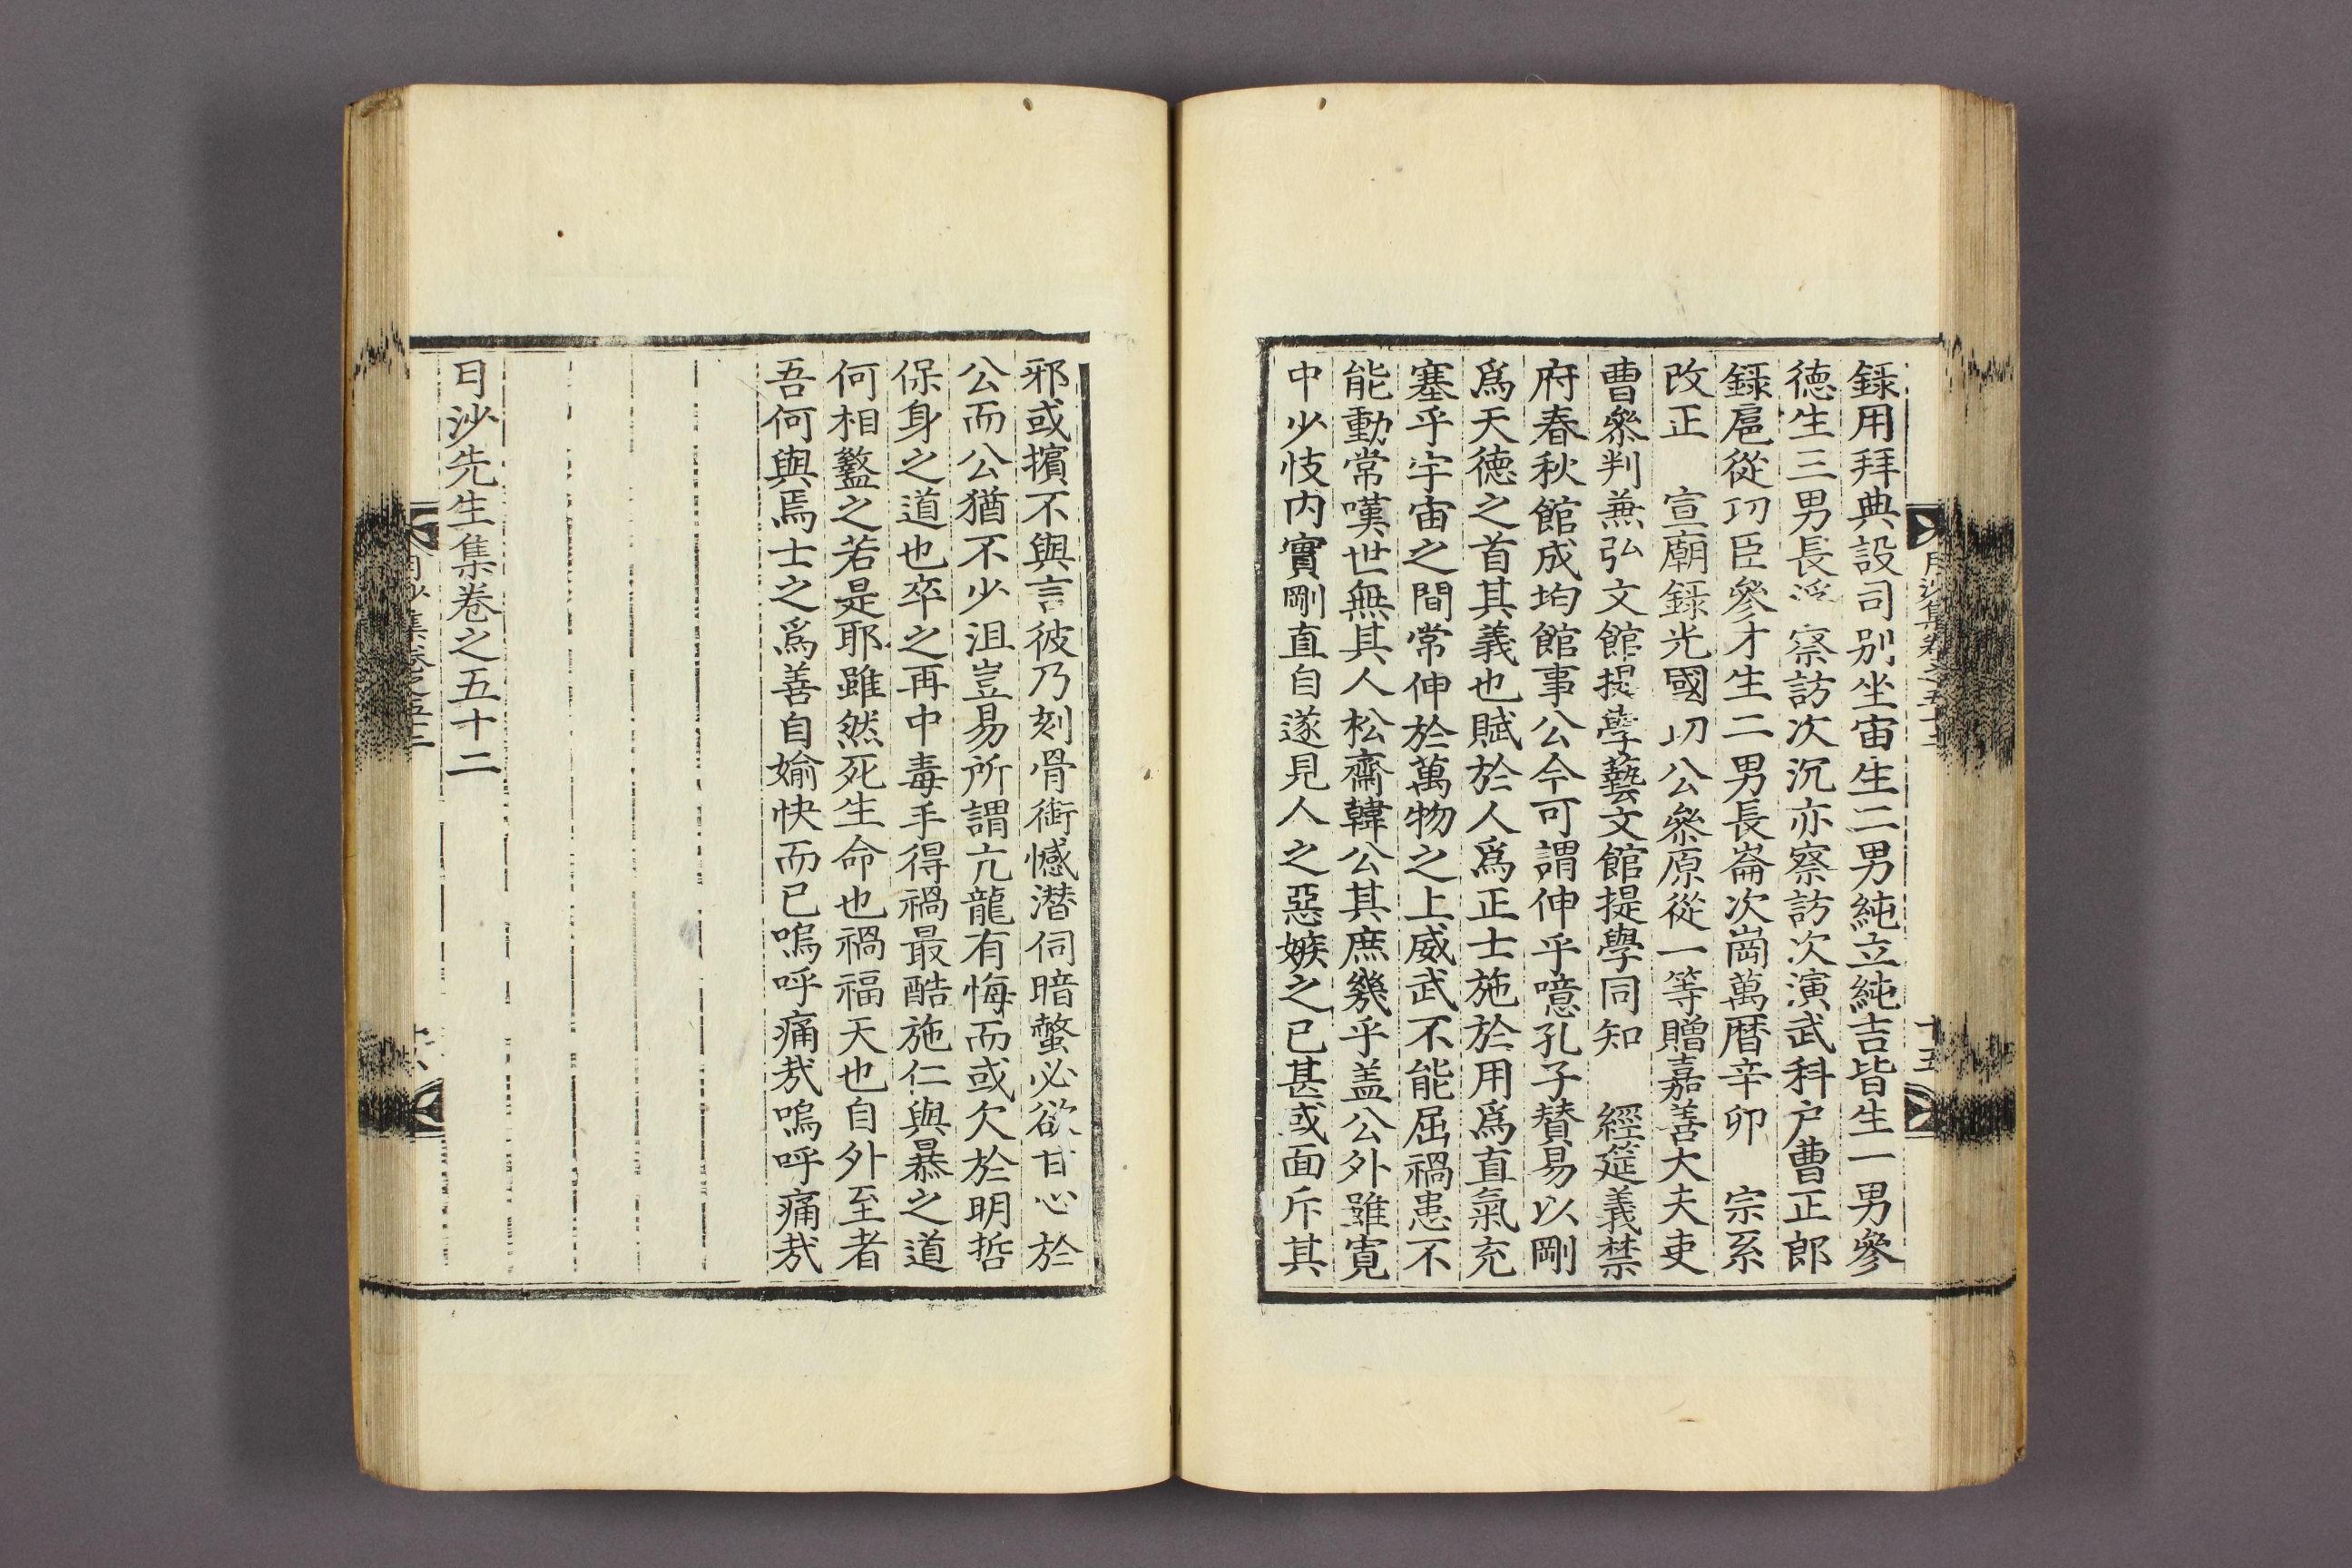 錄用拜典設司別坐宙生二男純立純吉皆生一男參
德生三男長浮 察訪次沉亦察訪次演武科户曹正郎
錄扈從功臣參才生二男長崙次崗萬曆辛卯 宗系
改正 宣廟錄光國功公叅原從一等贈嘉善大夫吏
曹叅判兼弘文館提學藝文館提學同知 經筵義禁
府春秋館成均館事公今可謂伸乎噫孔子賛易以剛
爲天德之首其義也賦於人爲正士施於用爲直氣充
塞乎宇宙之間常伸於萬物之上威武不能屈禍患不
能動常嘆世無其人松齋韓公其庶幾乎盖公外雖寬
中少忮内實剛直自遂見人之惡嫉之已甚或面斥其
邪或擯不與言彼乃刻骨銜憾潜伺暗螫必欲甘心於
公而公猶不少沮豈易所謂亢龍有悔而或欠於明哲
保身之道也卒之再中毒手得禍最酷施仁與暴之道
何相盭之若是耶雖然死生命也禍福天也自外至者
吾何與焉士之爲善自媮快而已嗚呼痛㢤嗚呼痛㢤
月沙先生集卷之五十二
月沙集卷之五十二
十五